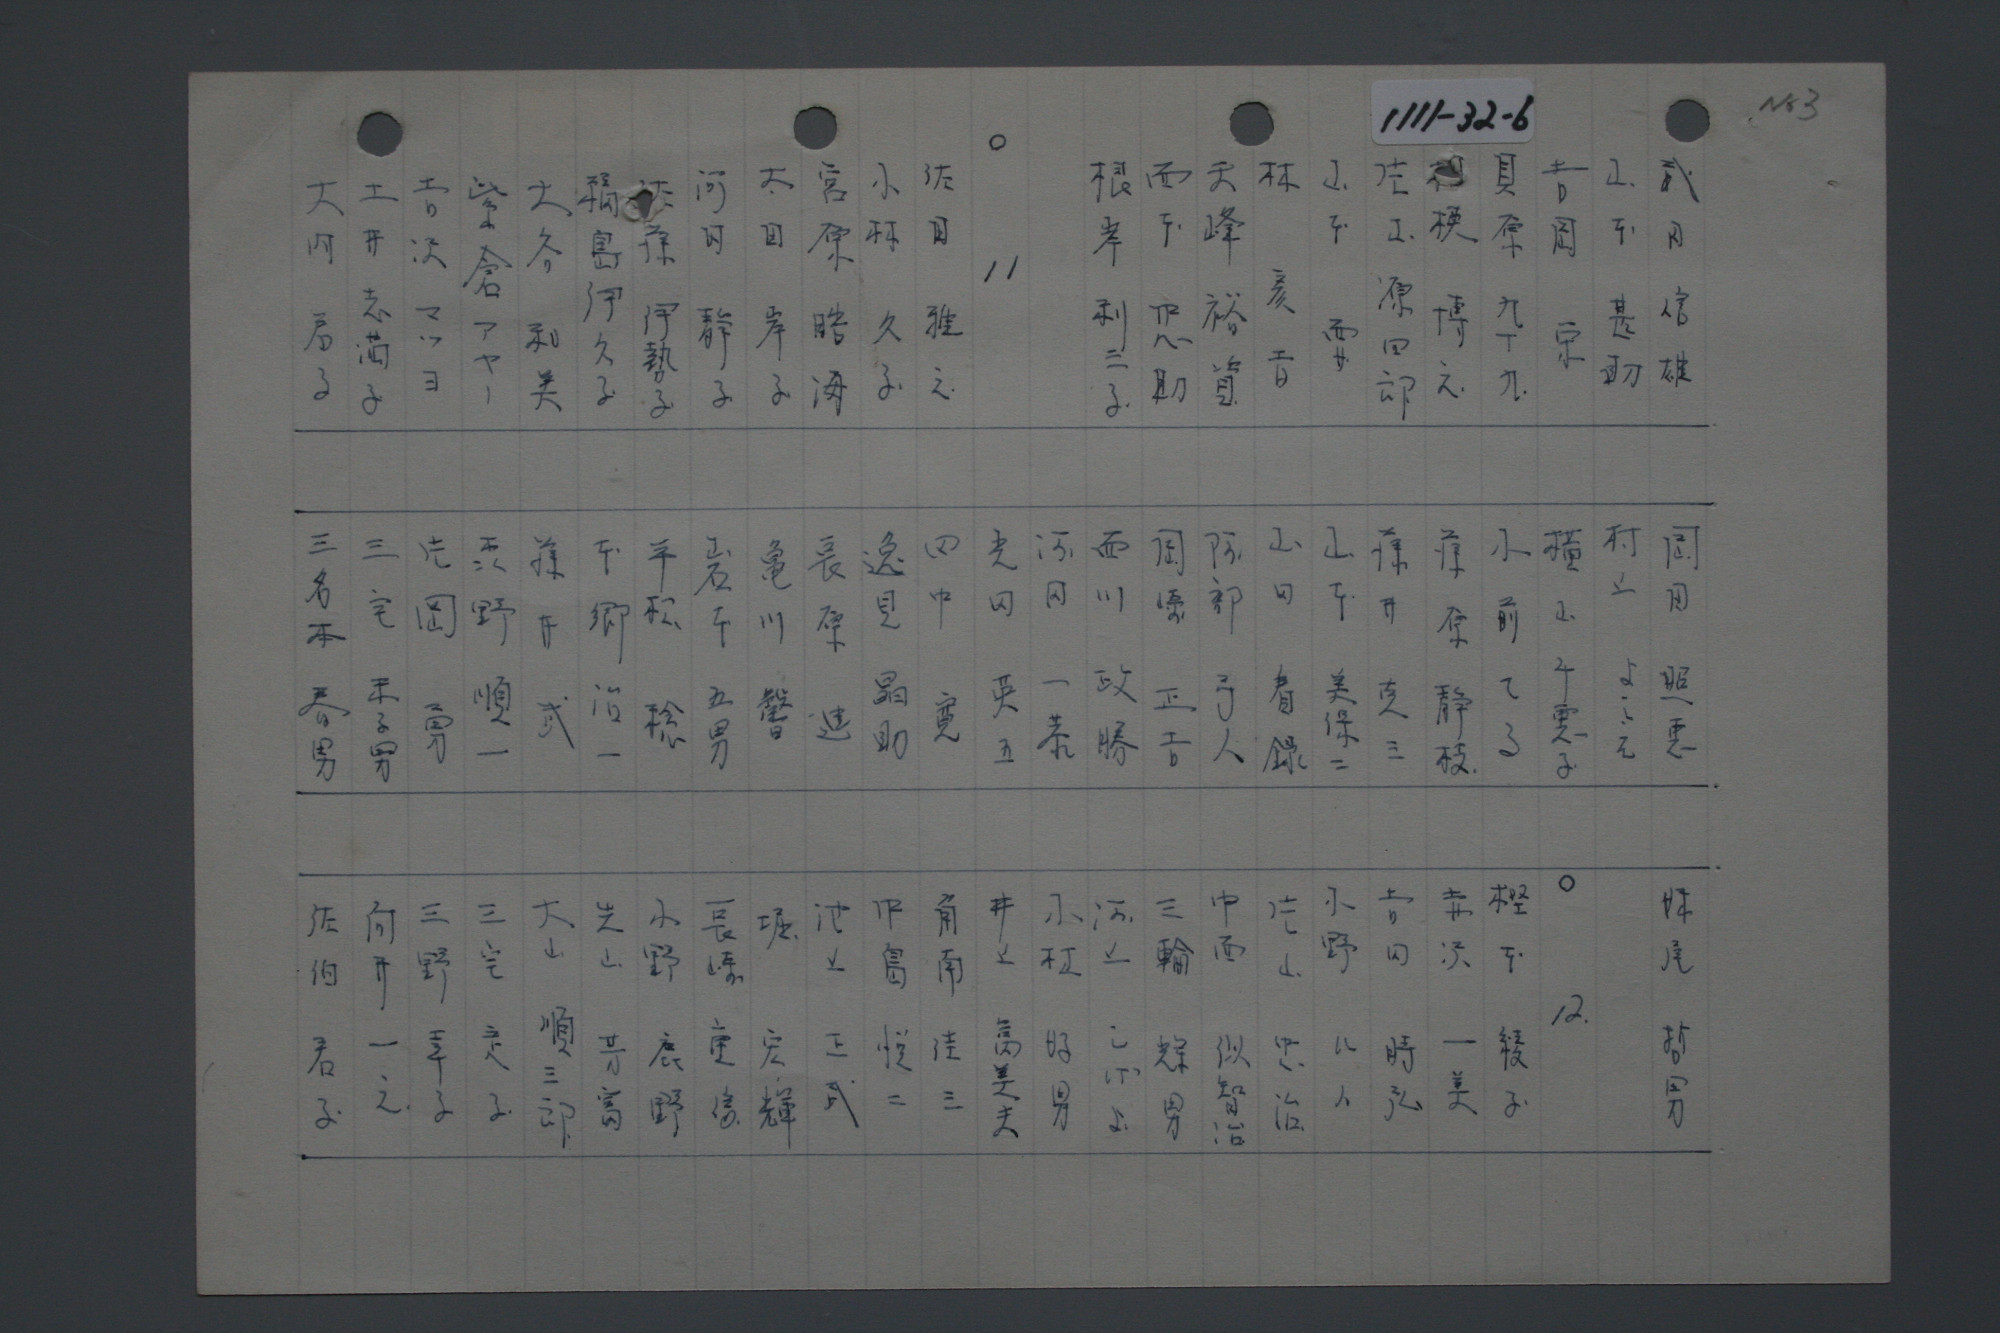 No3
1111-32-6
武田 信雄
山本 甚助
吉岡 宗
貝原 九十九
板梗 博之
片山 源四郎
山本 要
林 彦吉
天峰 裕資
西本 忠勘
根岸 利三子
○ 11
佐田 雅之
小林 久子
宮原 晧海
太田 岸子
河田 静子
佐藤 伊勢子
福島 伊久子
大谷 和美
紫倉 アヤー
吉沢 マツヨ
土井 志満子
大内 君子
岡田 照恵
村上 よこえ
横山 千恵子
小前 てる
藤原 静枝
藤井 克三
山本 美保二
山田 春録
阿部 弓人
岡崎 正吉
西川 政勝
河田 一恭
光田 英五
田中 寛
逸見 晶助
長原 進
亀川 馨
岩本 五男
平松 稔
本郷 治一
藤井 武
浜野 順一
片岡 勇
三宅 千子男
三名木 春男
妹尾 哲男
○ 12.
樫本 綾子
赤沢 一美
吉田 時弘
小野 公人
片山 忠治
中西 似智治
三輪 粲男
河上
小杠 好男
井上 富美夫
角南 佳三
中島 悦二
池上 正武
堀 宏輝
長崎
小野 鹿野
光山 芳富
大山 順三郎
三宅 定子
三野 幸子
向井 一之
佐伯 君子